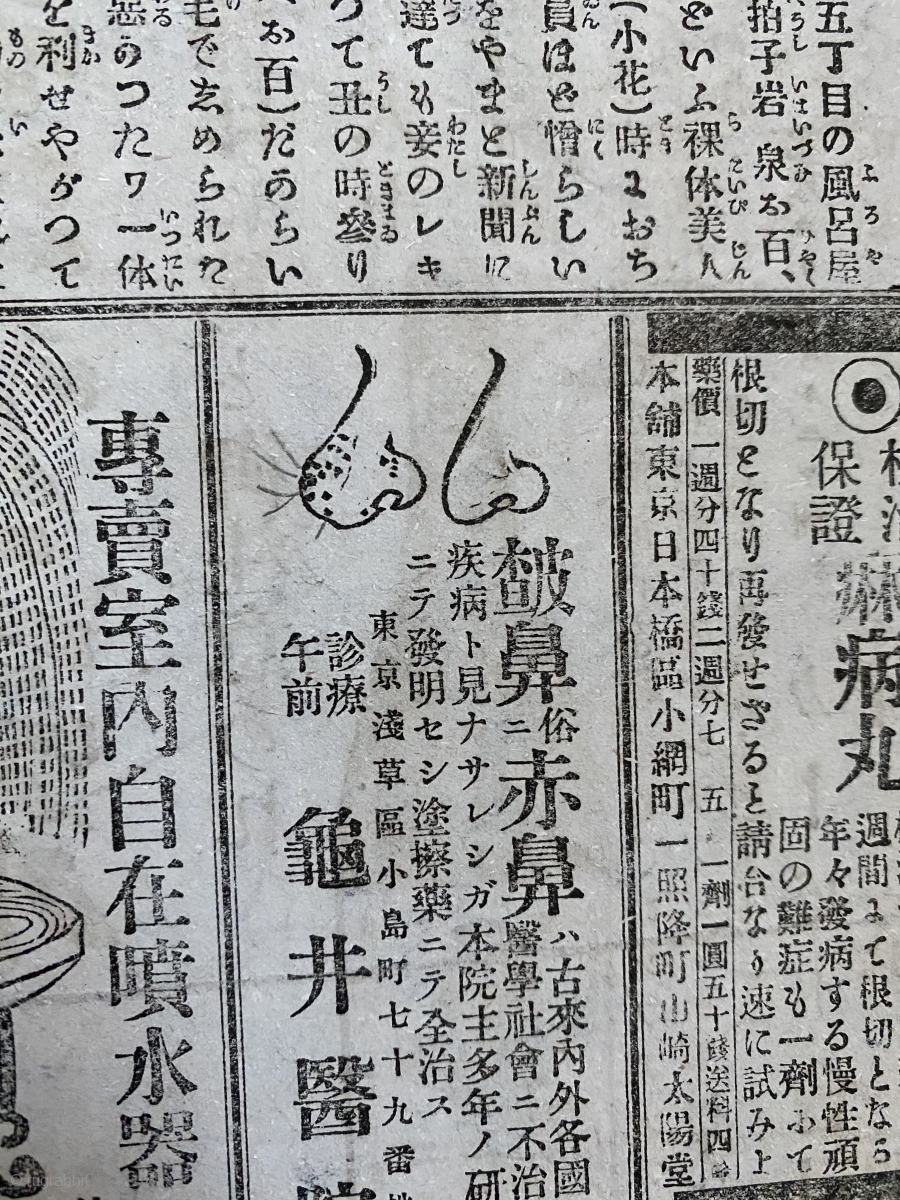 五丁目の風呂屋
拍子岩泉お百、
といふ裸体美人
(小花)時におち
員ほど憎らしい
をやまと新聞に
達ても妾のレキ
つて丑の時參り
お百)だのらい
毛で志められた
惡のつたワ一体
を利せやがつて
保證
淋病丸
週間にて根切となら
年々發病する慢性頑
固の難症も一劑にて
根切となり再發せざると請合なり速に試みよ
藥價 一週分四十錢二週分七 五 一劑一圓五十錢送料四
本舖東京日本橋區小網町一照降町山崎太陽堂
皶鼻ニ俗赤鼻ハ古來內外各國
醫學社會ニ不治
疾病ト見ナサレシガ本院主多年ノ研
ニテ發明セシ塗擦藥ニテ全治ス
東京淺草區小島町七十九番地
診療
午前
龜井醫院
專賣室內自在噴水器